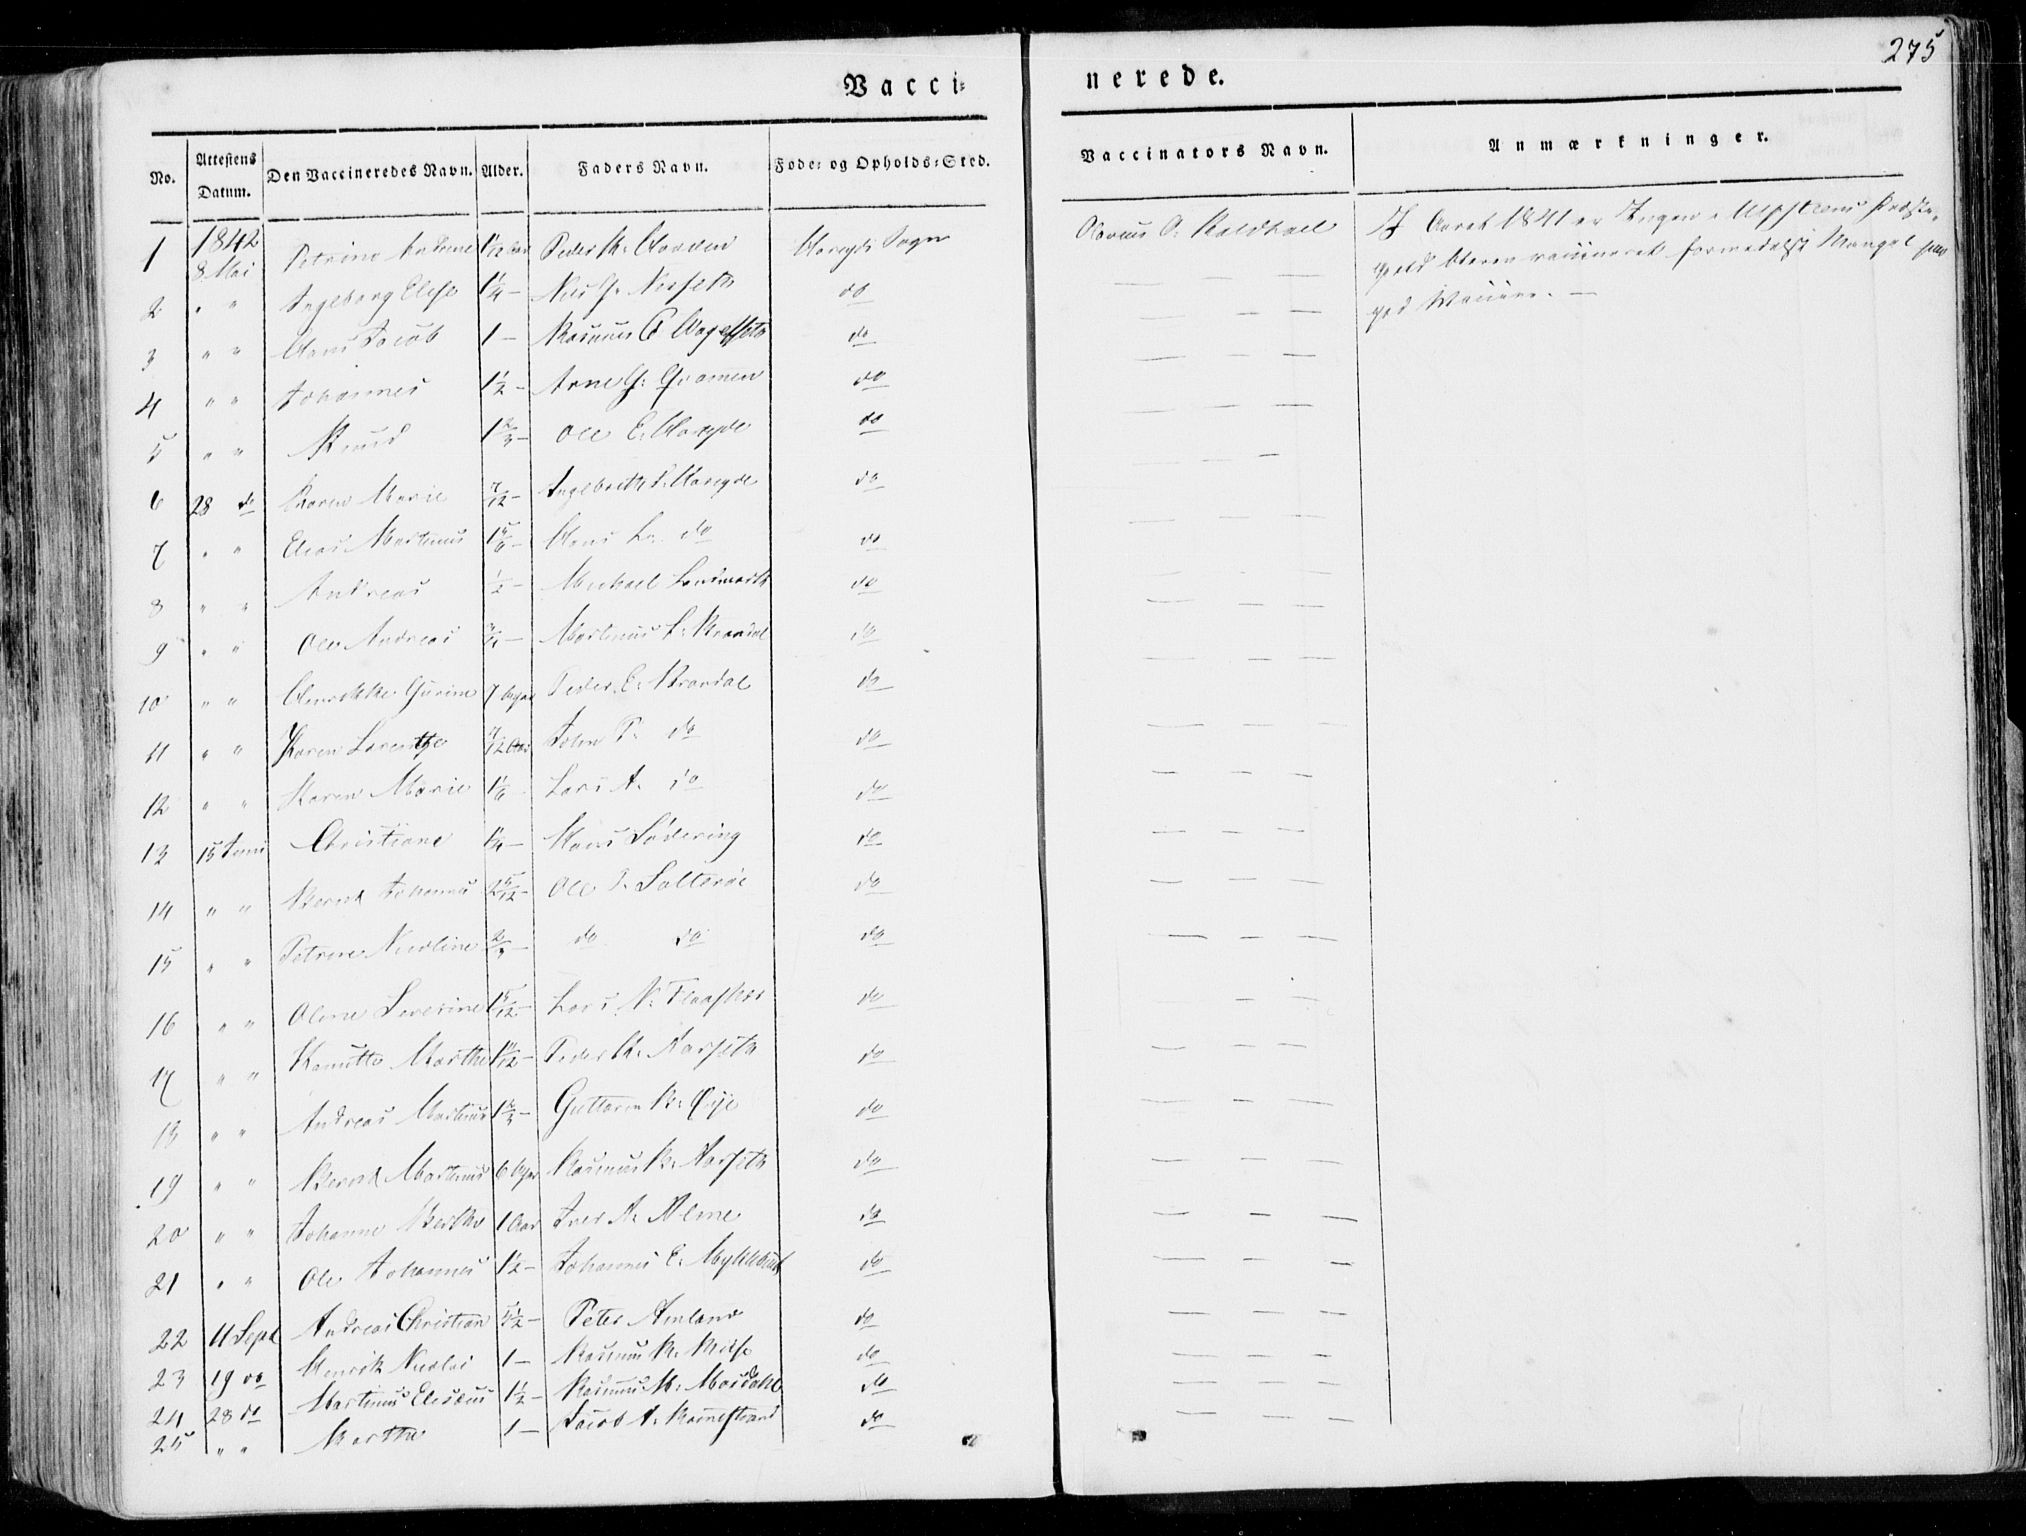 275
Vacci= nerede.
No. Attestens Datum. Den Vaccineredes Navn. Alder. Faders Navn. Føde= og Opholds=Sted. Vaccinators Navn. Anmærkninger.
1 1842 8 Mai Petrine Andrine Peder K: Hareids Sogn Olavus O: Koldhoel
I Aaret 1841 er Ingen i Ulfsteens Præste-
gield bleven vaccineret formedelst Mangel paa
god Vaccine. —
2 " " Ingeborg Else 1 1/4 — Nils do — — —
3 " " Hans Jacob 1 — Rasmus do — — —
4 " " Johannes 1 1/2 — Arne do — — —
5 " " Knud 1 2/3 — Ole E: Hareide do — — —
6 28 do Karen Marie 7/12 — Ingebrith Hareide do — — —
7 " " Elias Martinus 1 5/6 — Hans L: do do — — —
8 " " Andreas 1/2 — Michael Landmark do — — —
9 " " Ole Andreas Martinus L: Brandal do — — —
10 " " Gurine 7 Peder E: Brandal do — — —
11 " " Karen Lorentze 7/12 Aar John P: do do — — —
12 " " Karen Marie 1 1/6 Lars A: do do — — —
13 15 Juni Christiane 1 1/4 — Hans Lødering do — — —
14 " " Bernt Johannes 2 5/12 — Ole do — — —
15 " " Petrine Nicoline 2/3 — do do do — — —
16 " " Oline Severine 1 5/12 — Lars N: do — — —
17 " " Knutte Marthe Peder K: Aarseth do — — —
18 " " Andreas Martinus 1 2/3 — Guttorm K: Øije do — — —
19 " " Bernt Martinus 6 Rasmus K: Aarseth do — — —
20 " " Johanne Bertha 1 Aar Iver A: Alme do — — —
21 " " Ole Johannes 1 1/2 — Johannes E: Myklebust do — — —
22 11 Sept Andreas Christian Peter Amland do — — —
23 19 do Henrik Nicolai 1 — Rasmus K: do — — —
24 28 do Martinus Elisæus 1 1/2 — Rasmus M: Mordahl do — — —
25 " " Marthe 1 — Jacob A: do — — —